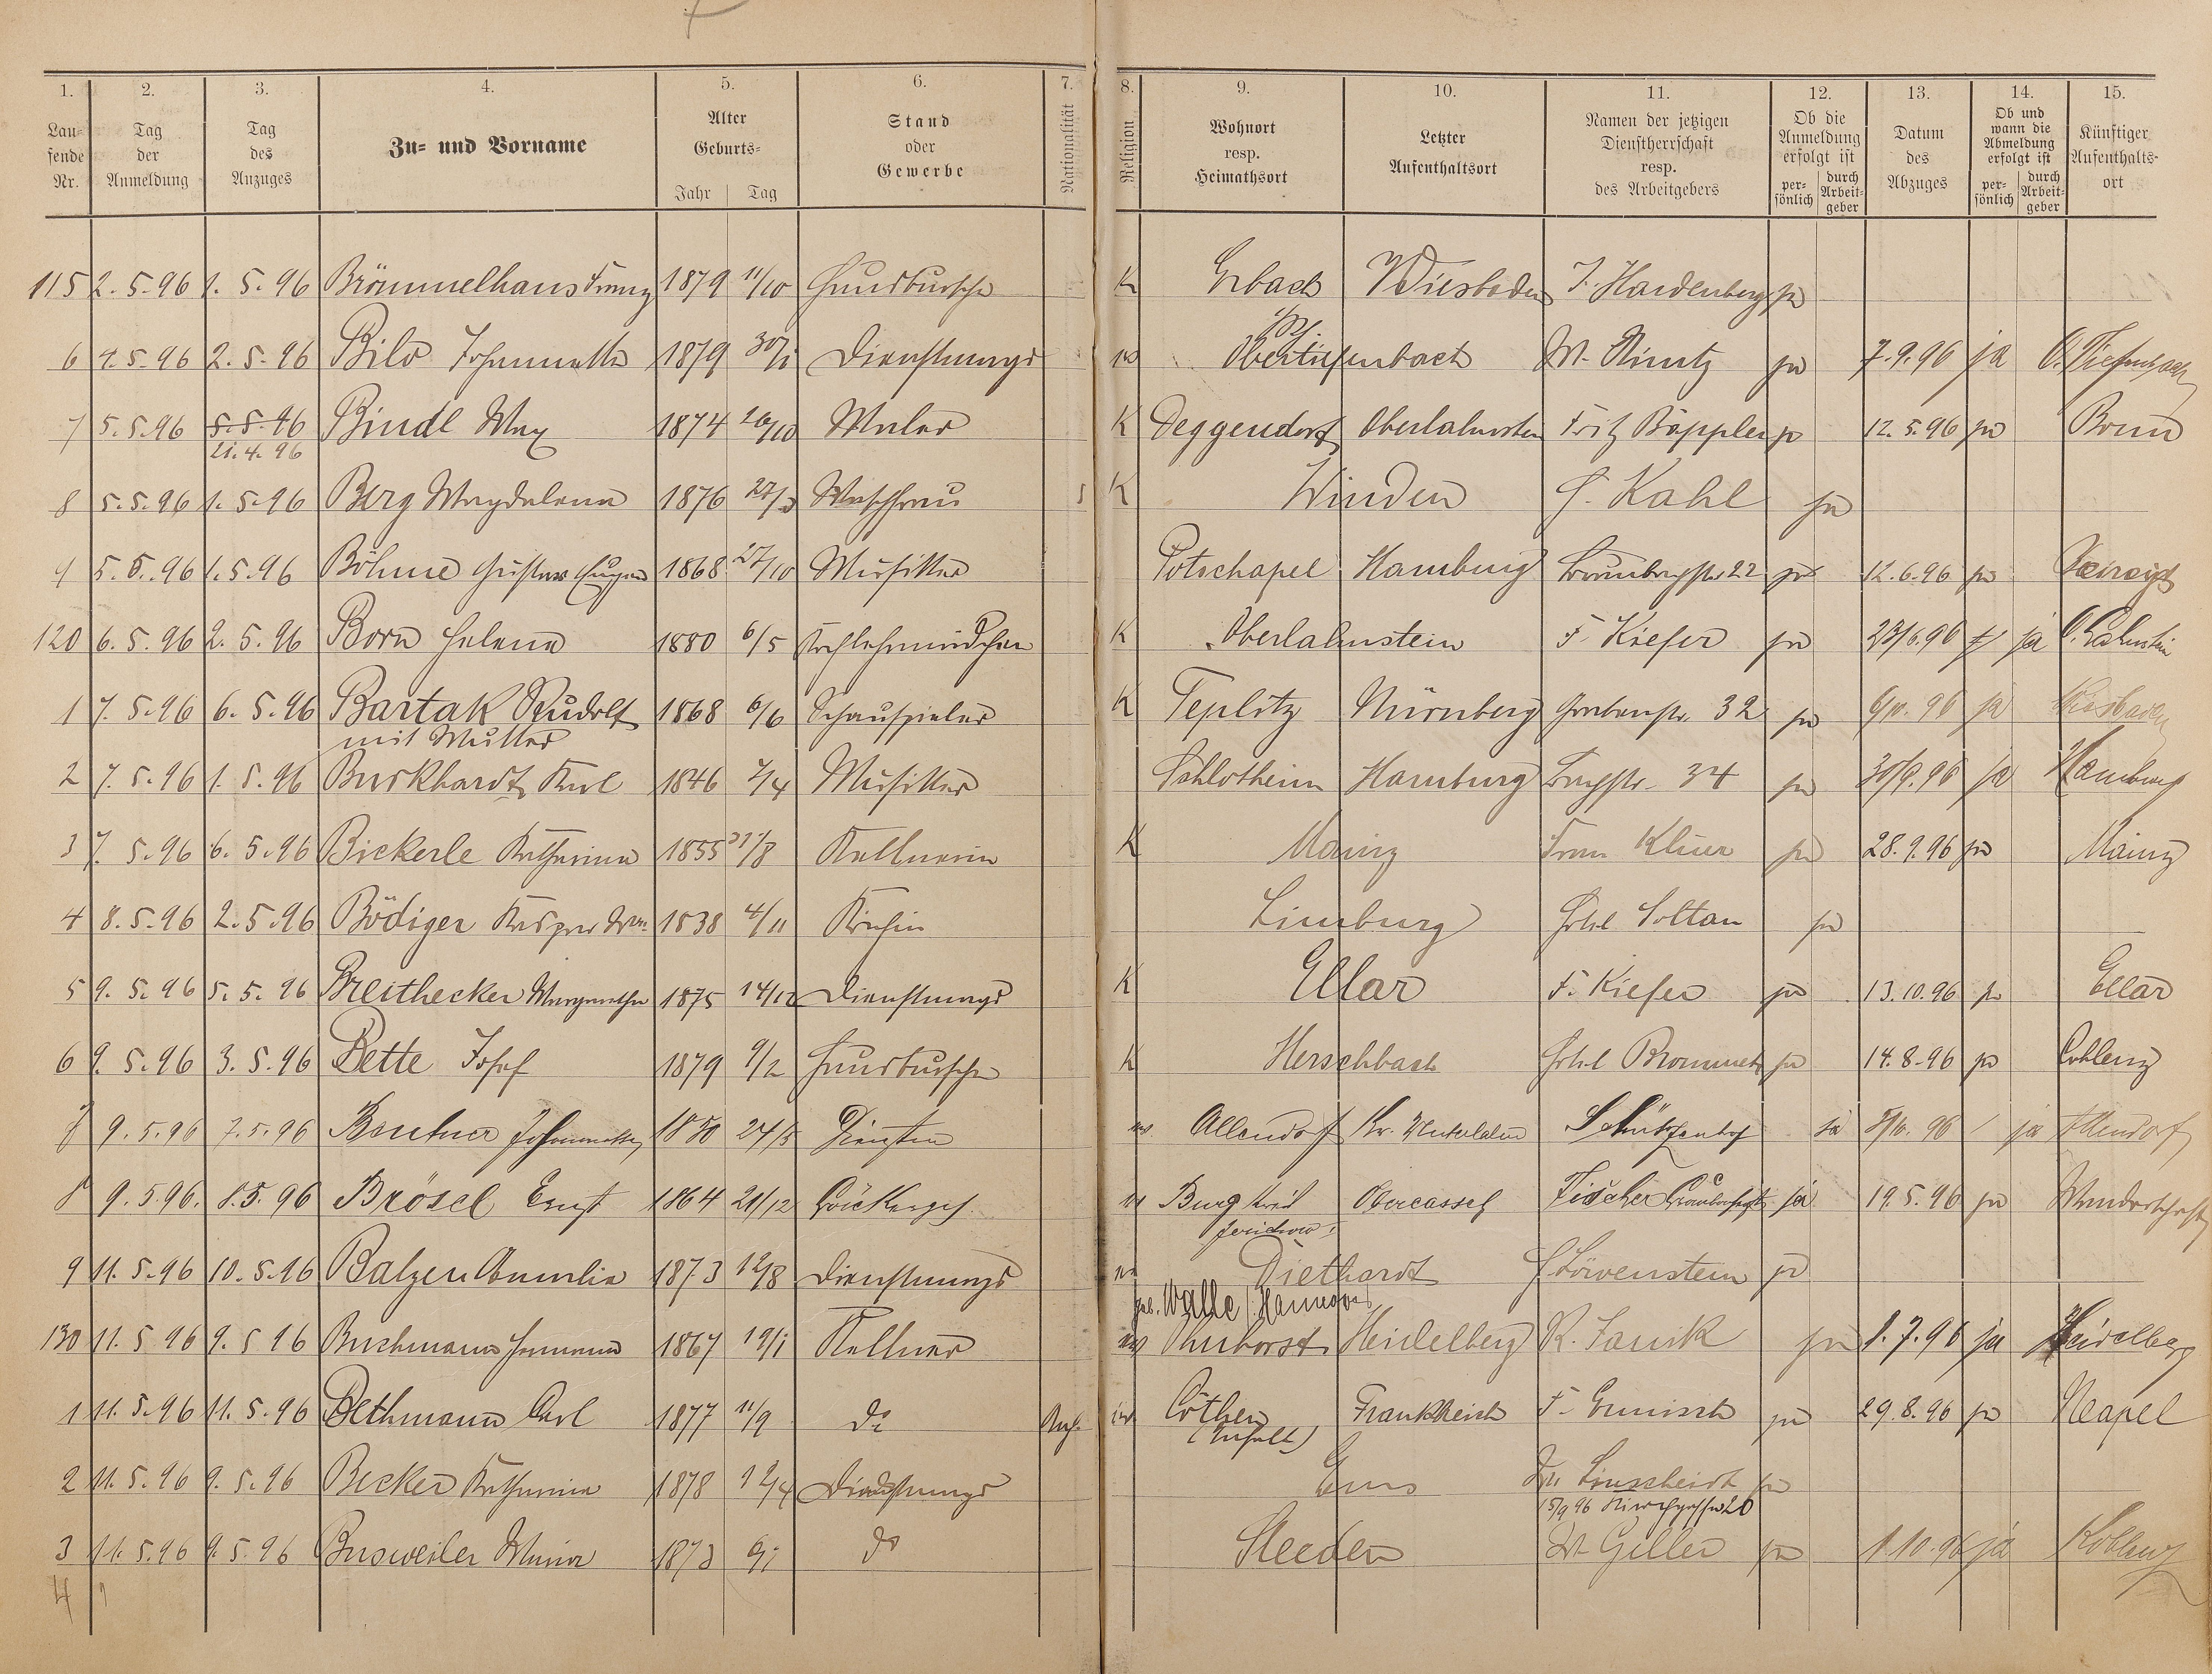 1. 2. 3. 4. 5. 6. 7. 8. 9. 10. 11. 12. 13. 14. 15.
Laufende Nr. Tag der Anmeldung Tag des Anzuges Zu- und Vorname Alter Geburts- Jahr Tag Stand oder Gewerbe Nationalität Religion Wohnort resp. Heimathsort Letzter Aufenthaltsort Namen der jetzigen Dienstherrschaft resp. des Arbeitgebers Ob die Anmeldung erfolgt ist persönlich durch Arbeitgeber Datum des Abzuges Ob und wann die Abmeldung erfolgt ist persönlich durch Arbeitgeber Künftiger Aufenthaltsort
115 2. 5. 96 1. 5. 96 Brömmelhaus Franz 1879 11/10 Hausbursche K Erbach Wiesbaden J. Hardenberg ja
6 4. 5. 96 2. 5. 96 Bilo Johannette 1879 30/1 Dienstmagd Obertiefenbach W. ja 7. 9. 96 ja O. Tiefenbach
7 5. 5. 96 5. 5. 96 Bindl Max 1874 Maler K Deggendorf Oberlahnstein Fritz Bäppler ja 12. 5. 96 ja Bonn
21. 4. 96
8 5. 5. 96 1. 5. 96 Berg Magdalena 1876 Waschfrau K Winden H. Kahl ja
9 5. 5. 96 1. 5. 96 Böhme Gustav Eugen 1868 27/10 Musiker Potschapel Hamburg 22 ja 12. 6. 96 ja
120 6. 5. 96 2. 5. 96 Born Helene 1880 6/5 Kochlehrmädchen K Oberlahnstein F. Kiefer ja 23/6. 96 ja O. Lahnstein
1 7. 5. 96 6. 5. 96 Bartak Rudolf 1868 6/6 Schauspieler K Teplitz Nürnberg Grabenstr. 32 ja ja Wiesbaden
mit Mutter
2 7. 5. 96 1. 5. 96 Burkhardt Karl 1846 7/4 Musiker Schlotheim Hamburg 34 ja 30/9. 96 ja Hamburg
3 7. 5. 96 6. 5. 96 Bickerle Katharina 1855 Kellnerin K Mainz Frau ja 28. 9. 96 ja Mainz
4 8. 5. 96 2. 5. 96 Bödiger Kaspar Wwe. 1838 4/11 Köchin Limburg Hotel Soltau ja
5 9. 5. 96 5. 5. 96 Breithecker Margarethe 1875 14/12 Dienstmagd K Ellar F. Kiefer ja 13. 10. 96 ja Ellar
6 9. 5. 96 3. 5. 96 Bette Josef 1879 9/2 Hausbursche K Herschbach Hotel ja 14. 8. 96 ja Coblenz
7 9. 5. 96 7. 5. 96 Johannette 1850 24/5 Allendorf Schützenhof ja ja Allendorf
8 9. 5. 96. 8. 5. 96 Brösel Ernst 1864 21/12 Burg Kreis Obercassel Fischer ja 19. 5. 96 ja Wanderschaft
Jerichow I
9 11. 5. 96 10. 5. 96 Balzer Amalie 1873 Dienstmagd Diethardt Löwenstein ja
geb. Walle (Hannover)
130 11. 5 96 9. 5 96 Buchmann Hermann 1867 19/1 Kellner Heidelberg R. ja 1. 7. 96 ja Heidelberg
1 11. 5. 96 11. 5. 96 Bethmann Carl 1877 11/9 do Anh. Cöthen Frankreich F. ja 29. 8. 96 ja Neapel
(Anhalt)
2 11. 5. 96 9. 5. 96 Becker Katharina 1878 Dienstmagd Ems Linscheidt ja
15/9 96 20
3 11. 5. 96 9. 5. 96 Busweiler Maria 1873 do Steeden W. Geller ja 1. 10. 96 ja Koblenz
4